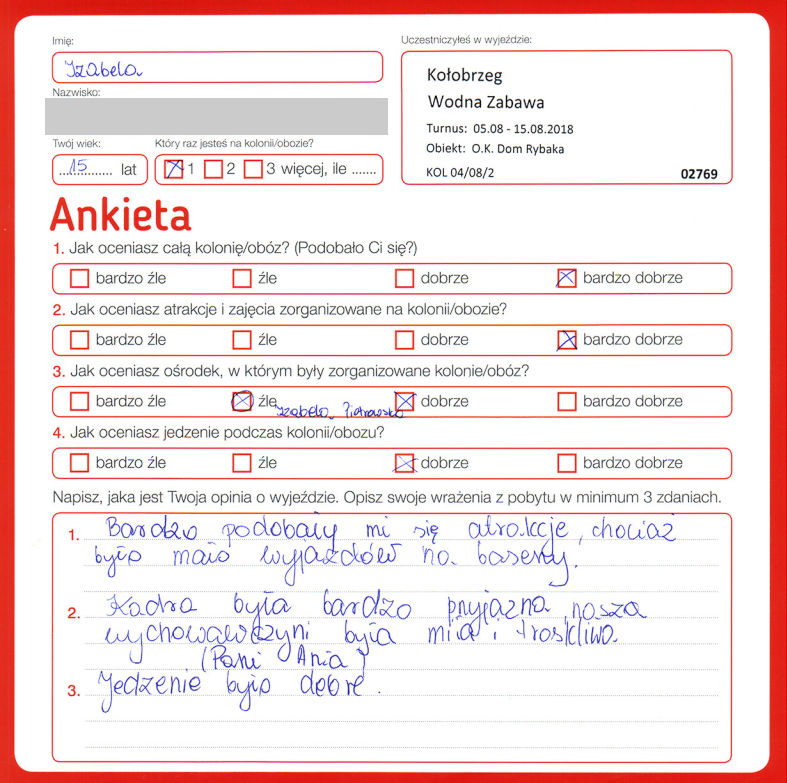 Imię:
Uczestniczyłeś w wyjeździe:
Izabela
Kołobrzeg
Wodna Zabawa
Turnus: 05.08 - 15.08.2018
Obiekt: O.K. Dom Rybaka
KOL 04/08/2 02769
Nazwisko:
Twój wiek: Który raz jesteś na kolonii/obozie?
15 lat 1 2 3 więcej, ile .......
Ankieta
1. Jak oceniasz całą kolonię/obóz? (Podobało Ci się?)
bardzo źle źle dobrze bardzo dobrze
2. Jak oceniasz atrakcje i zajęcia zorganizowane na kolonii/obozie?
bardzo źle źle dobrze bardzo dobrze
3. Jak oceniasz ośrodek, w którym były zorganizowane kolonie/obóz?
bardzo źle źle dobrze bardzo dobrze
Izabela Piotrowska
4. Jak oceniasz jedzenie podczas kolonii/obozu?
bardzo źle źle dobrze bardzo dobrze
Napisz, jaka jest Twoja opinia o wyjeździe. Opisz swoje wrażenia z pobytu w minimum 3 zdaniach.
1. Bardzo podobały mi się atrakcje, chociaż
było mało wyjazdów na baseny.
2. Kadra była bardzo przyjazna, nasza
wychowawczyni była miła i troskliwa
(Pani Ania)
3. Jedzenie było dobre.